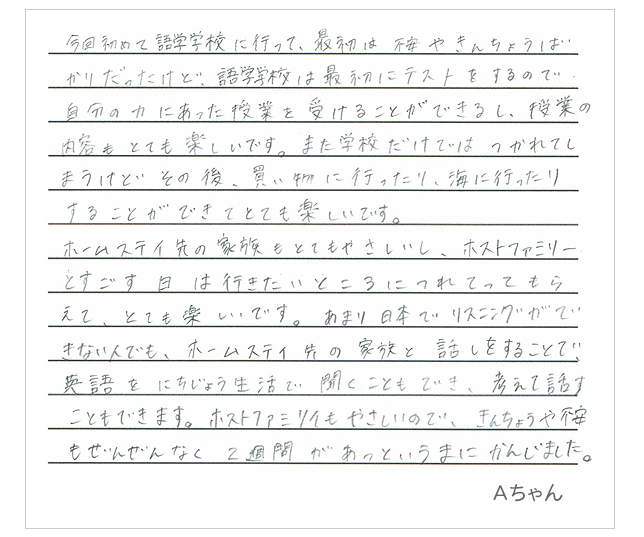 今回初めて語学学校に行って、最初は不安やきんちょうば
かりだったけど、語学学校は最初にテストをするので
自分の力にあった授業を受けることができるし、授業の
内容もとても楽しいです。また学校だけではつかれてし
まうけどその後、買い物に行ったり、海に行ったり
することができてとても楽しいです。
ホームステイ先の家族もとてもやさしいし、ホストファミリー
とすごす日は行きたいところにつれてってもら
えて、とても楽しいです。あまり日本でリスニングがで
きない人でも、ホームステイ先の家族と話しをすることで
英語をにちじょう生活で聞くこともでき、考えて話す
こともできます。ホストファミリイもやさしいので、きんちょうや不安
もぜんぜんなく2週間があっというまにかんじました。
Aちゃん